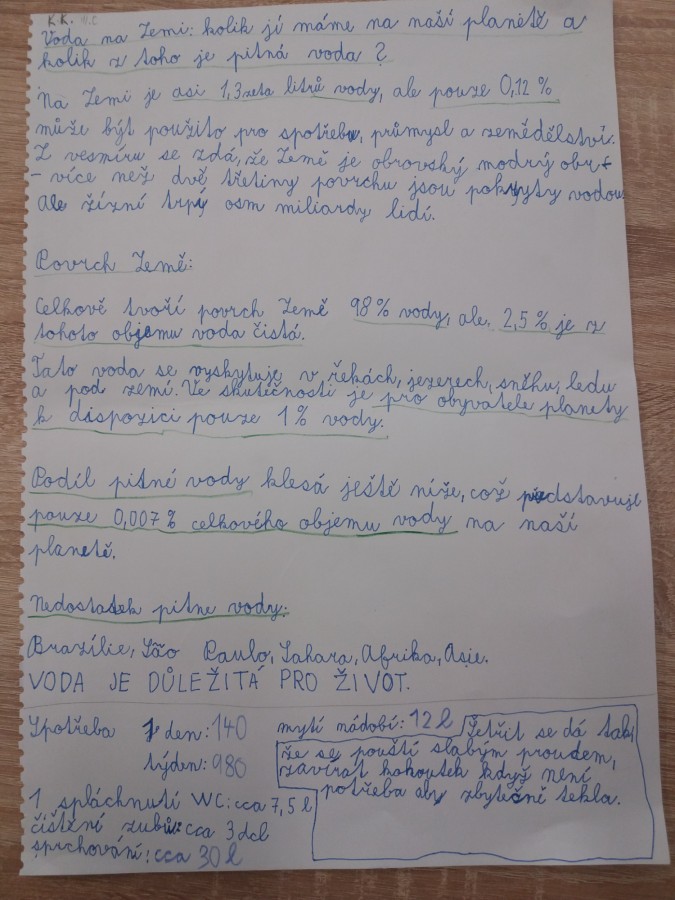 K.K. N.C
Voda na Zemi: kolik jí máme na naší planetě a
kolik z toho je pitná voda?
Na Zemi je asi 1,3 zeta litrů vody, ale pouze 0,12 %
může být použito pro spotřebu, průmysl a zemědělství.
Z vesmíru se zdá, že Země je obrovský modrý obr
- více než dvě třetiny povrchu jsou pokryty vodou
Ale žízní trpý osm miliardy lidí.
Povrch Země:
Celkově tvoří povrch Země 98 % vody, ale 2,5 % je z
tohoto objemu voda čistá.
Tato voda se vyskytuje v řekách, jezerech, sněhu, ledu
a pod zemí. Ve skutečnosti je pro obyvatele planety
k dispozici pouze 1 % vody.
Podíl pitné vody klesá ještě níže, což představuje
pouze 0,007 % celkového objemu vody na naší
planetě.
Nedostatek pitne vody:
Brazílie, São Paulo, Sahara, Afrika, Asie.
VODA JE DŮLEŽITÁ PRO ŽIVOT.
Spotřeba 1 den: 140
týden: 980
1 spláchnutí WC: cca 7,5 l
čištění zubů: cca 3 dcl
sprchování: cca 30 l
mytí nádobí: 12 l
Šetřit se dá tak,
že se pouští slabým proudem,
zavírat kohoutek když není
potřeba aby zbytečně tekla.